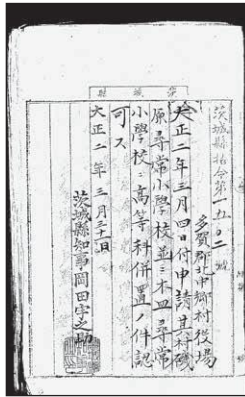 茨城縣
茨城縣指令第一五〇二號
多賀郡北中郷村役場
大正二年三月四日付申請其村磯
原尋常小學校並ニ木皿尋常
小學校ニ高等科併置ノ件認
可ス
大正二年三月三十一日
茨城縣知事岡田宇之助